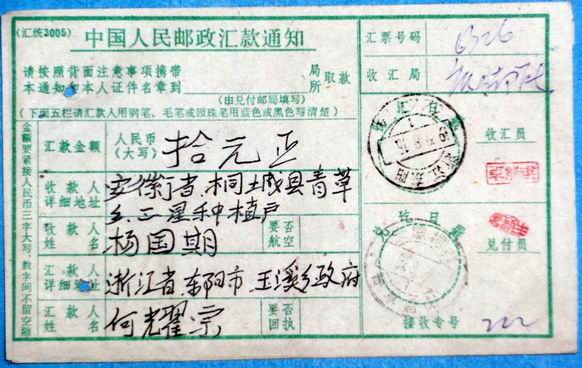 (汇统3005) 中国人民邮政汇款通知
汇票号码 6326
请按照背面注意事项携带
本通知和本人证件名章到 局所 取款
(由兑付邮局填写)
收汇局
(下面五栏请汇款人用钢笔、毛笔或圆珠笔用蓝色或黑色写清楚)
金额要紧接人民币三字大写,数字间不留空隙
汇款金额 人民币(大写) 拾元正
收款人详细地址 安徽省桐城县青草
乡三星种植户
收款人姓名 杨国期 要否航空
汇款人详细地址 浙江省东阳市玉溪乡政府
汇款人姓名 何光耀宗 要否回执
收汇日戳
收汇员
兑讫日戳
兑付员
接收专号 222